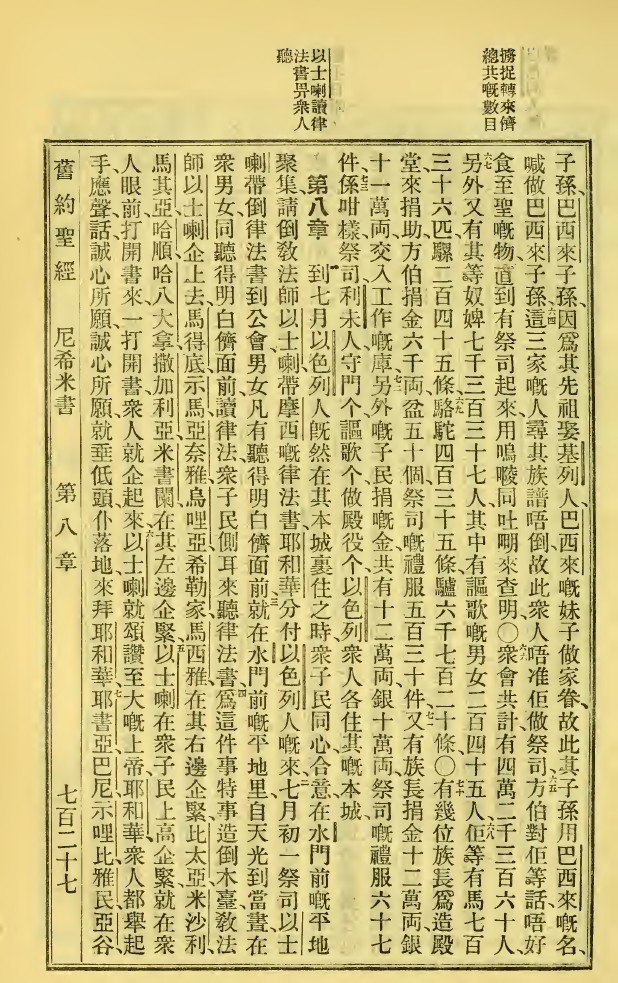 擄捉轉來儕
總共嘅數目
以士喇讀律
法書畀衆人
聽
子孫、巴西來子孫、因爲其先祖娶基列人、巴西來嘅妹子做家眷、故此其子孫用巴西來嘅名、
喊做巴西來子孫、六四這三家嘅人尋其族譜唔倒、故此衆人唔准佢做祭司、六五方伯對佢等話、唔好
食至聖嘅物、直到有祭司起來用嗚㘄同吐嘲來查明、〇六六衆會共計有四萬二千三百六十人、
六七另外又有其等奴婢七千三百三十七人、其中有謳歌嘅男女二百四十五人、六八佢等有馬七百
三十六匹、騾二百四十五條、六九駱駝四百三十五條、驢六千七百二十條、〇七十有幾位族長爲造殿
堂來捐助、方伯捐金六千両、盆五十個、祭司嘅禮服五百三十件、七一又有族長捐金十二萬両、銀
十一萬両、交入工作嘅庫、七二另外嘅子民捐嘅金共有十二萬両、銀十萬両、祭司嘅禮服六十七
件、七三係咁樣祭司、利未人、守門个、謳歌个、做殿役个、以色列衆人、各住其嘅本城、
第八章 到七月以色列人旣然在其本城裏住之時、衆子民同心合意在水門前嘅平地
聚集、請倒敎法師以士喇帶摩西嘅律法書、耶和華分付以色列人嘅來、二七月初一祭司以士
喇帶倒律法書到公會男女、凡有聽得明白儕面前、三就在水門前嘅平地里、自天光到當晝、在
衆男女同聽得明白儕面前讀律法、衆子民側耳來聽律法書、四爲這件事特事造倒木臺、敎法
師以士喇企上去、馬得底示馬亞奈雅烏哩亞希勒家馬西雅在其右邊企緊、比太亞米沙利
馬其亞哈順哈八大拿撒加利亞米書闌在其左邊企緊、五以士喇在衆子民上高企緊、就在衆
人眼前打開書來、一打開書衆人就企起來、六以士喇就頌讚至大嘅上帝耶和華、衆人都舉起
手應聲話、誠心所願、誠心所願、就垂低頭仆落地來拜耶和華、七耶書亞巴尼示哩比雅民亞谷
舊約聖經 尼希米書 第八章 七百二十七